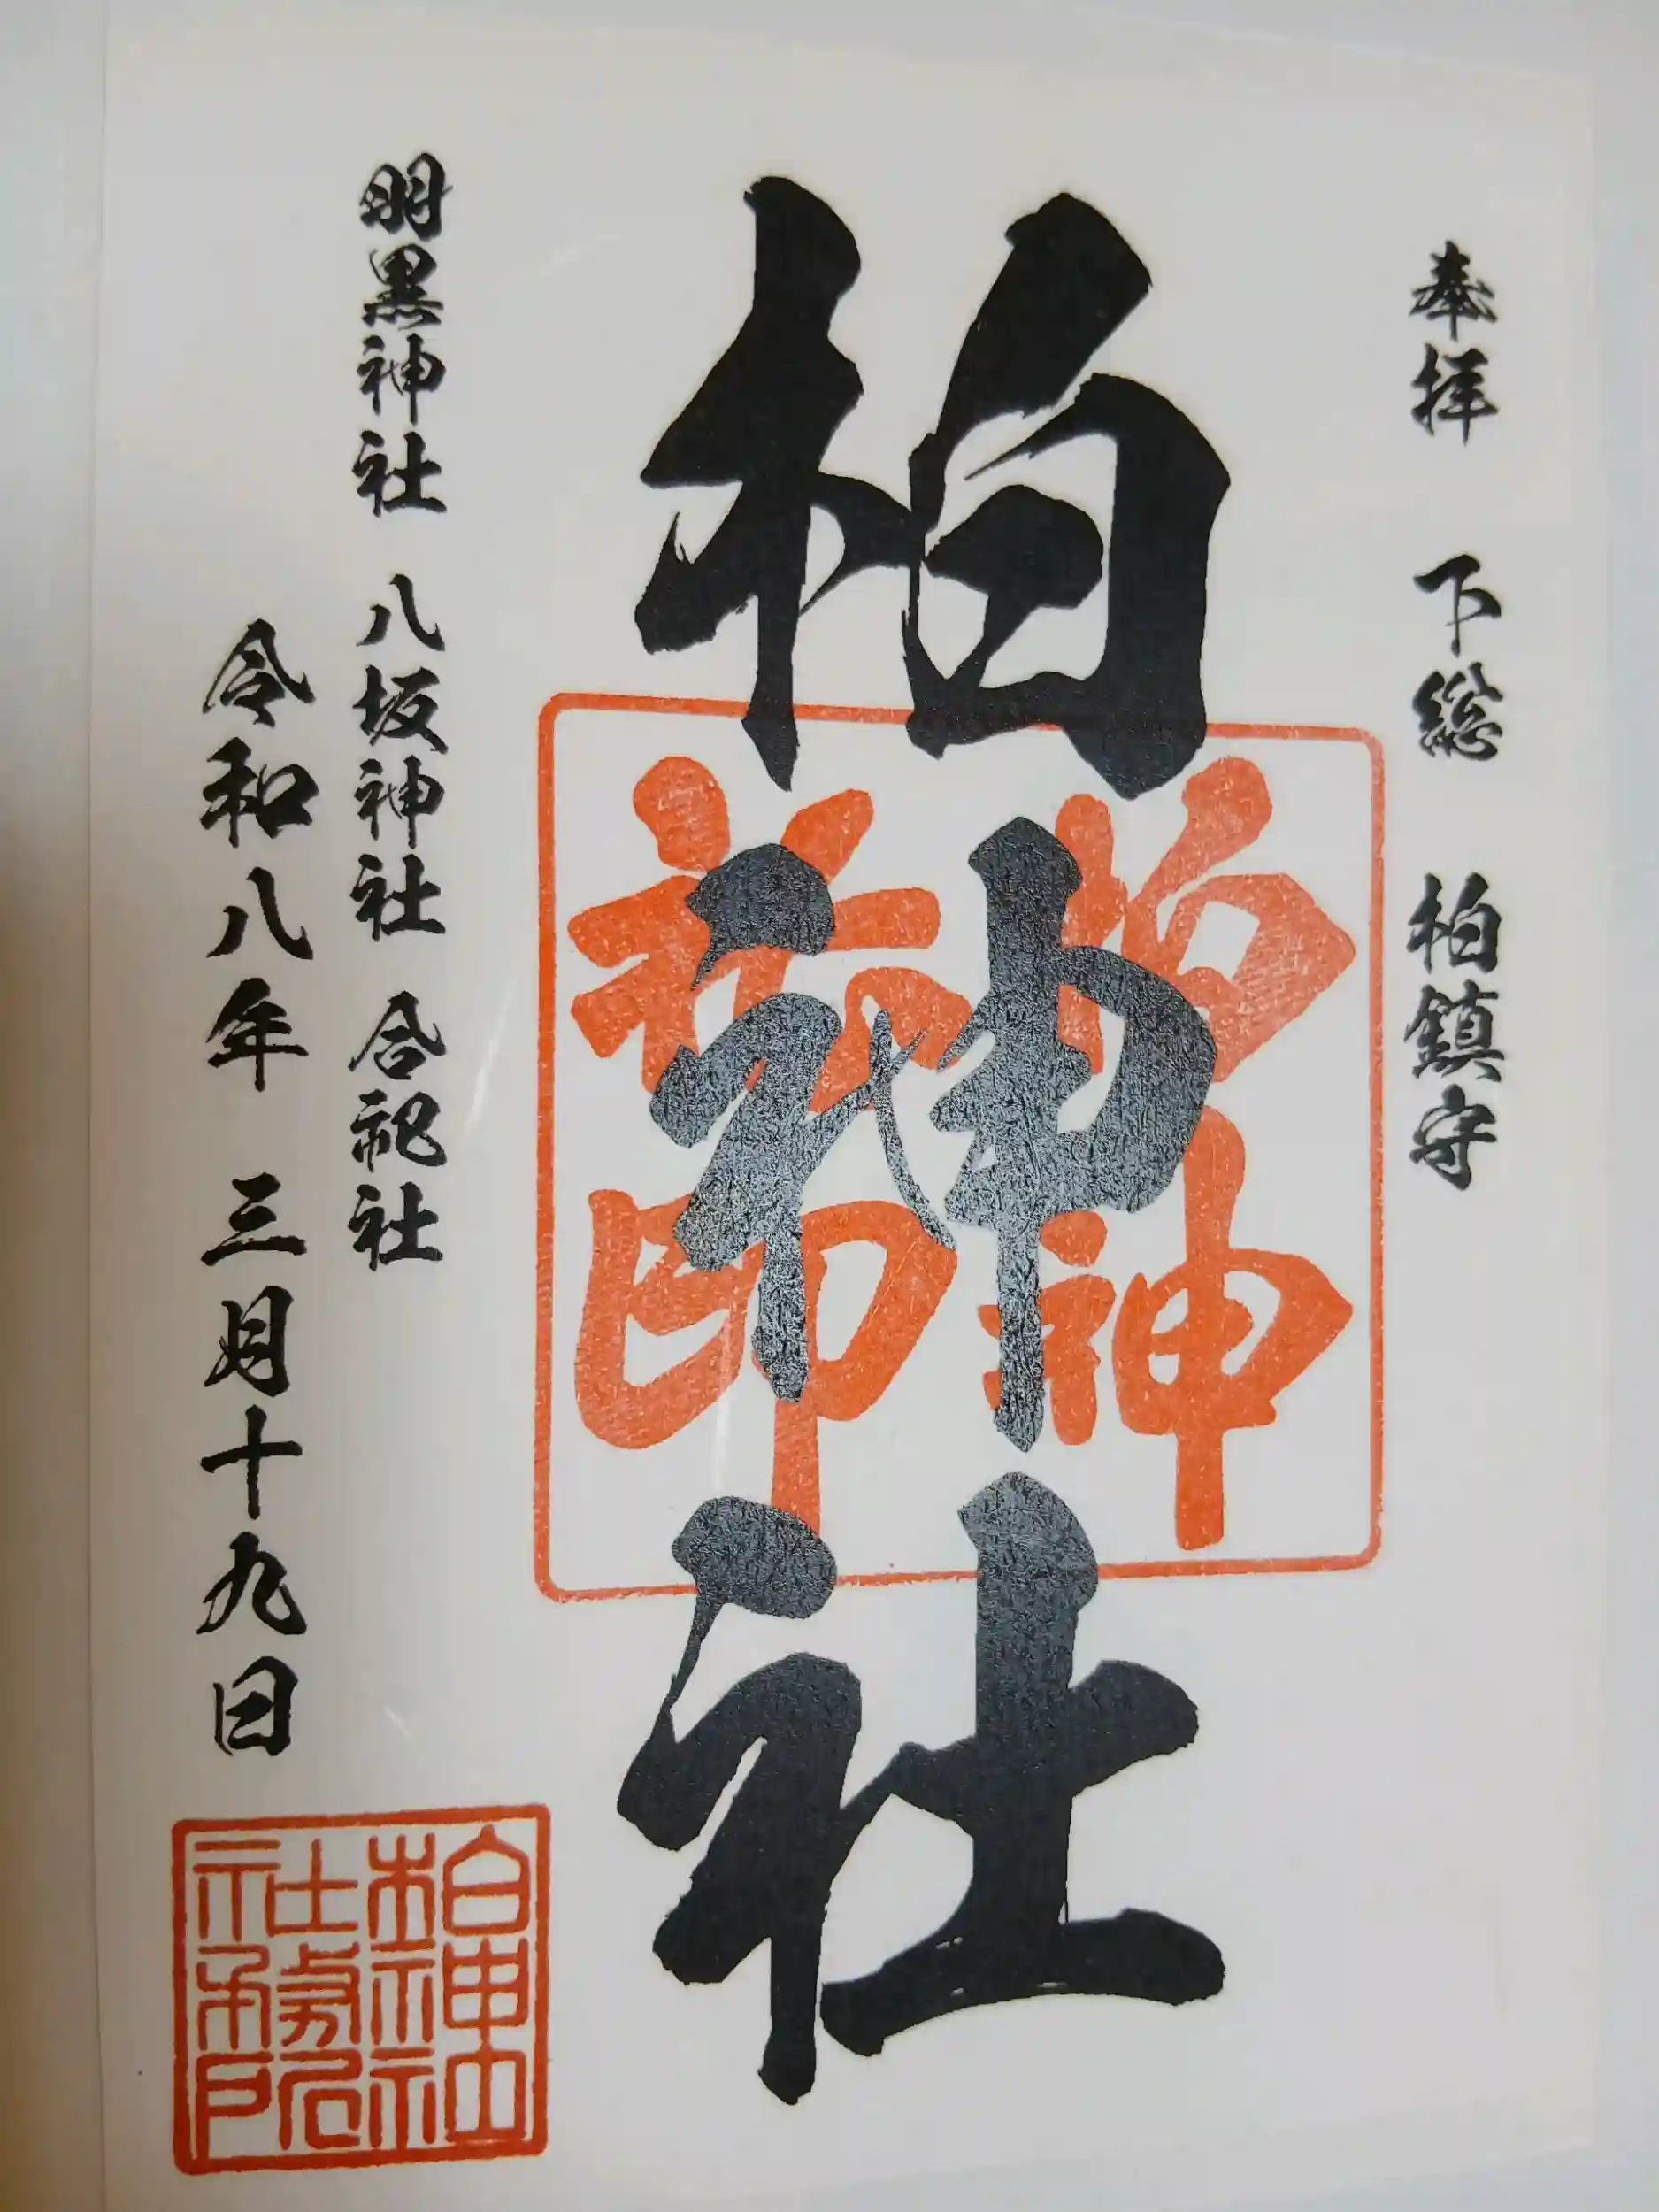 奉拝 下総 柏鎮守
柏神社
柏神
社印
羽黒神社 八坂神社 合祀社
令和八年 三月十九日
柏神社
社務所